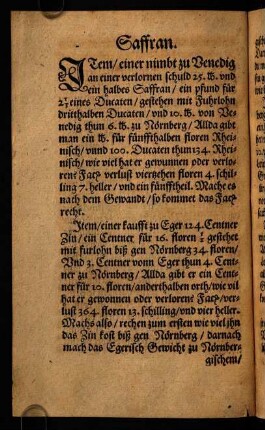 Saffran.
ITem/einer nimbt zu Venedig
an einer verlornen schuld 25. ℔. vnd
ein halbes Saffran/ein pfund für
2½ eines Ducaten/gestehen mit Fuhrlohn
dritthalben Ducaten/vnd 10. ℔. von Ve-
nedig thun 6. ℔. zu Nörnberg/Allda gibt
man ein ℔. für fünffthalben floren Rhei-
nisch/vnnd 100. Ducaten thun 134. Rhei-
nisch/wie viel hat er gewonnen oder verlo-
ren? Facp verlust vierzehen floren 4. schil-
ling 7. heller/vnd ein fünfftheil. Mache es
nach dem Gewandt/so kommet das Facp
recht.
Item/einer kaufft zu Eger 124. Centner
Zin/ein Centner für 16. floren gestehet
mit furlohn biß gen Nörnberg 34. floren/
Vnd 3. Centner vonn Eger thun 4. Cent-
ner zu Nörnberg/Allda gibt er ein Cent-
ner für 10. floren/anderthalben orth/wie vil
hat er gewonnen oder verloren? Facp/ver-
lust 364. floren 13. schilling/vnd vier heller.
Machs also/rechen zum ersten wie viel jhn
das Zin kost biß gen Nörnberg/darnach
mach das Egerisch Gewicht zu Nörnber-
gischem/